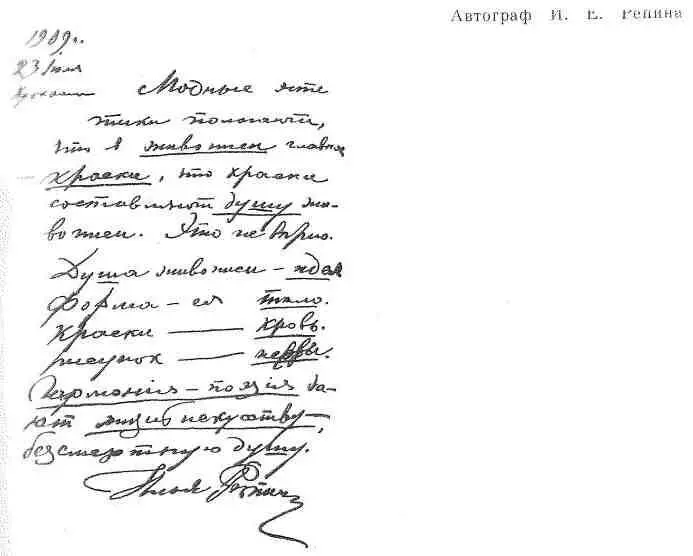 Автограф И. Е. Репина
1909 г.
23 Июля
Модные эсте
тики полагают,
что в живописи главное
краски, что краски
составляют душу жи-
вописи. Это не верно.
Душа живописи – идея
Форма – ея тело.
Краски — кровь.
рисунок — нервы.
Гармонія – поэзія да-
ют жизнь искусству –
безсмертную душу.
Илья Репин